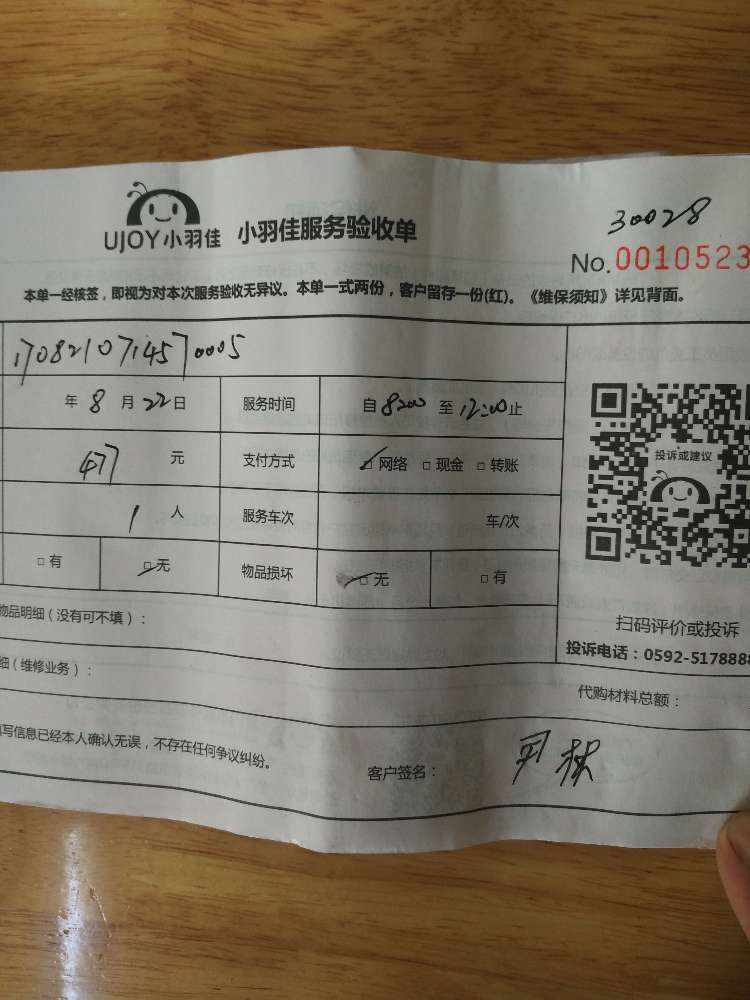 30028
UJOY小羽佳 小羽佳服务验收单
No.0010523
本单一经核签，即视为对本次服务验收无异议。本单一式两份，客户留存一份(红)。《维保须知》详见背面。
1708210714570005
年 8 月 22 日 服务时间 自 8:00 至 12:00 止
477 元 支付方式 □ 网络 □ 现金 □ 转账
1 人 服务车次 车/次
□ 有 □ 无 物品损坏 □ 无 □ 有
投诉或建议
物品明细（没有可不填）：
扫码评价或投诉
细（维修业务）：
投诉电话：0592-5178888
代购材料总额：
填写信息已经本人确认无误，不存在任何争议纠纷。
客户签名：